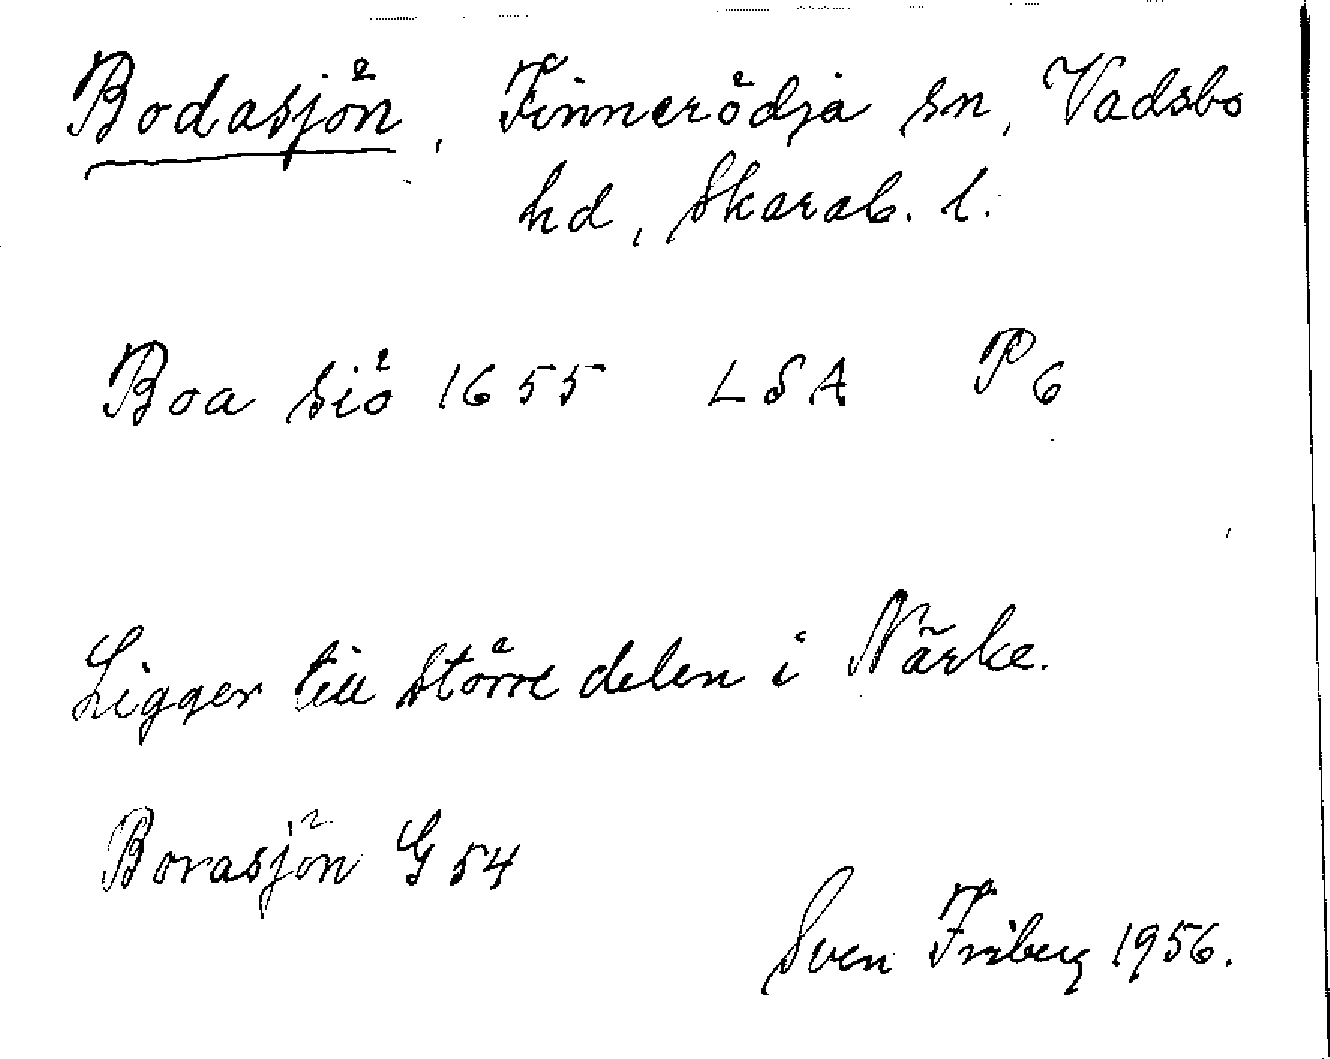 Bodasjön, Finnerödja sn, Vadsbo
hd, Skarab. l.
Boa siö 1655 LSA P 6
Ligger till större delen i Närke.
Borasjön G 54
Sven Friberg 1956.